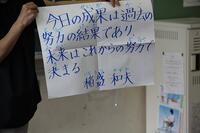 今日の成果は過去の
努力の結果であり、
未来はこれからの努力で
決まる
稲盛 和夫